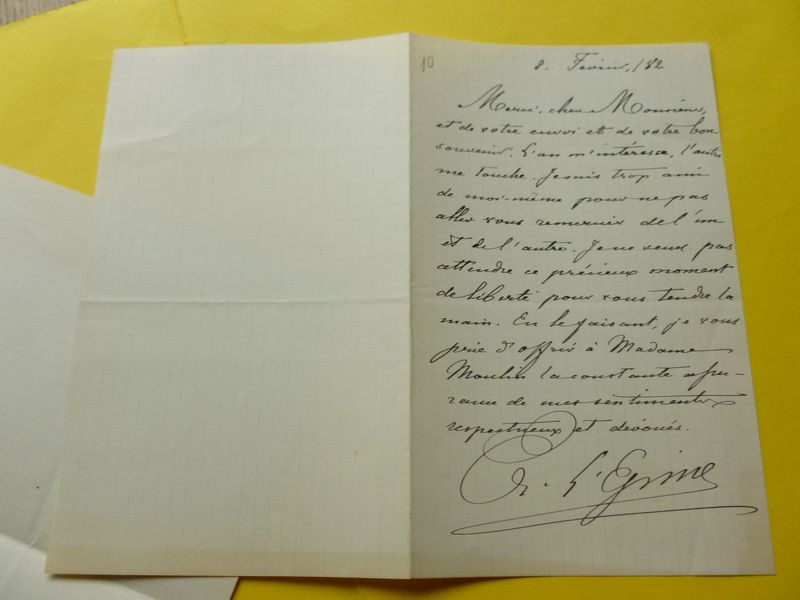 10
8. Février, /82
Merci, cher Monsieur,
et de votre envoi et de votre bon
souvenir. L'un m'intéresse, l'autre
me touche. Je suis trop ami
de moi-même pour ne pas
aller vous remercier de l'un
et de l'autre. Je ne veux pas
attendre ce précieux moment
de liberté pour vous tendre la
main. En le faisant, je vous
prie d'offrir à Madame
Moulin la constante assu-
rance de mes sentiments
respectueux et dévoués.
Ch. L'